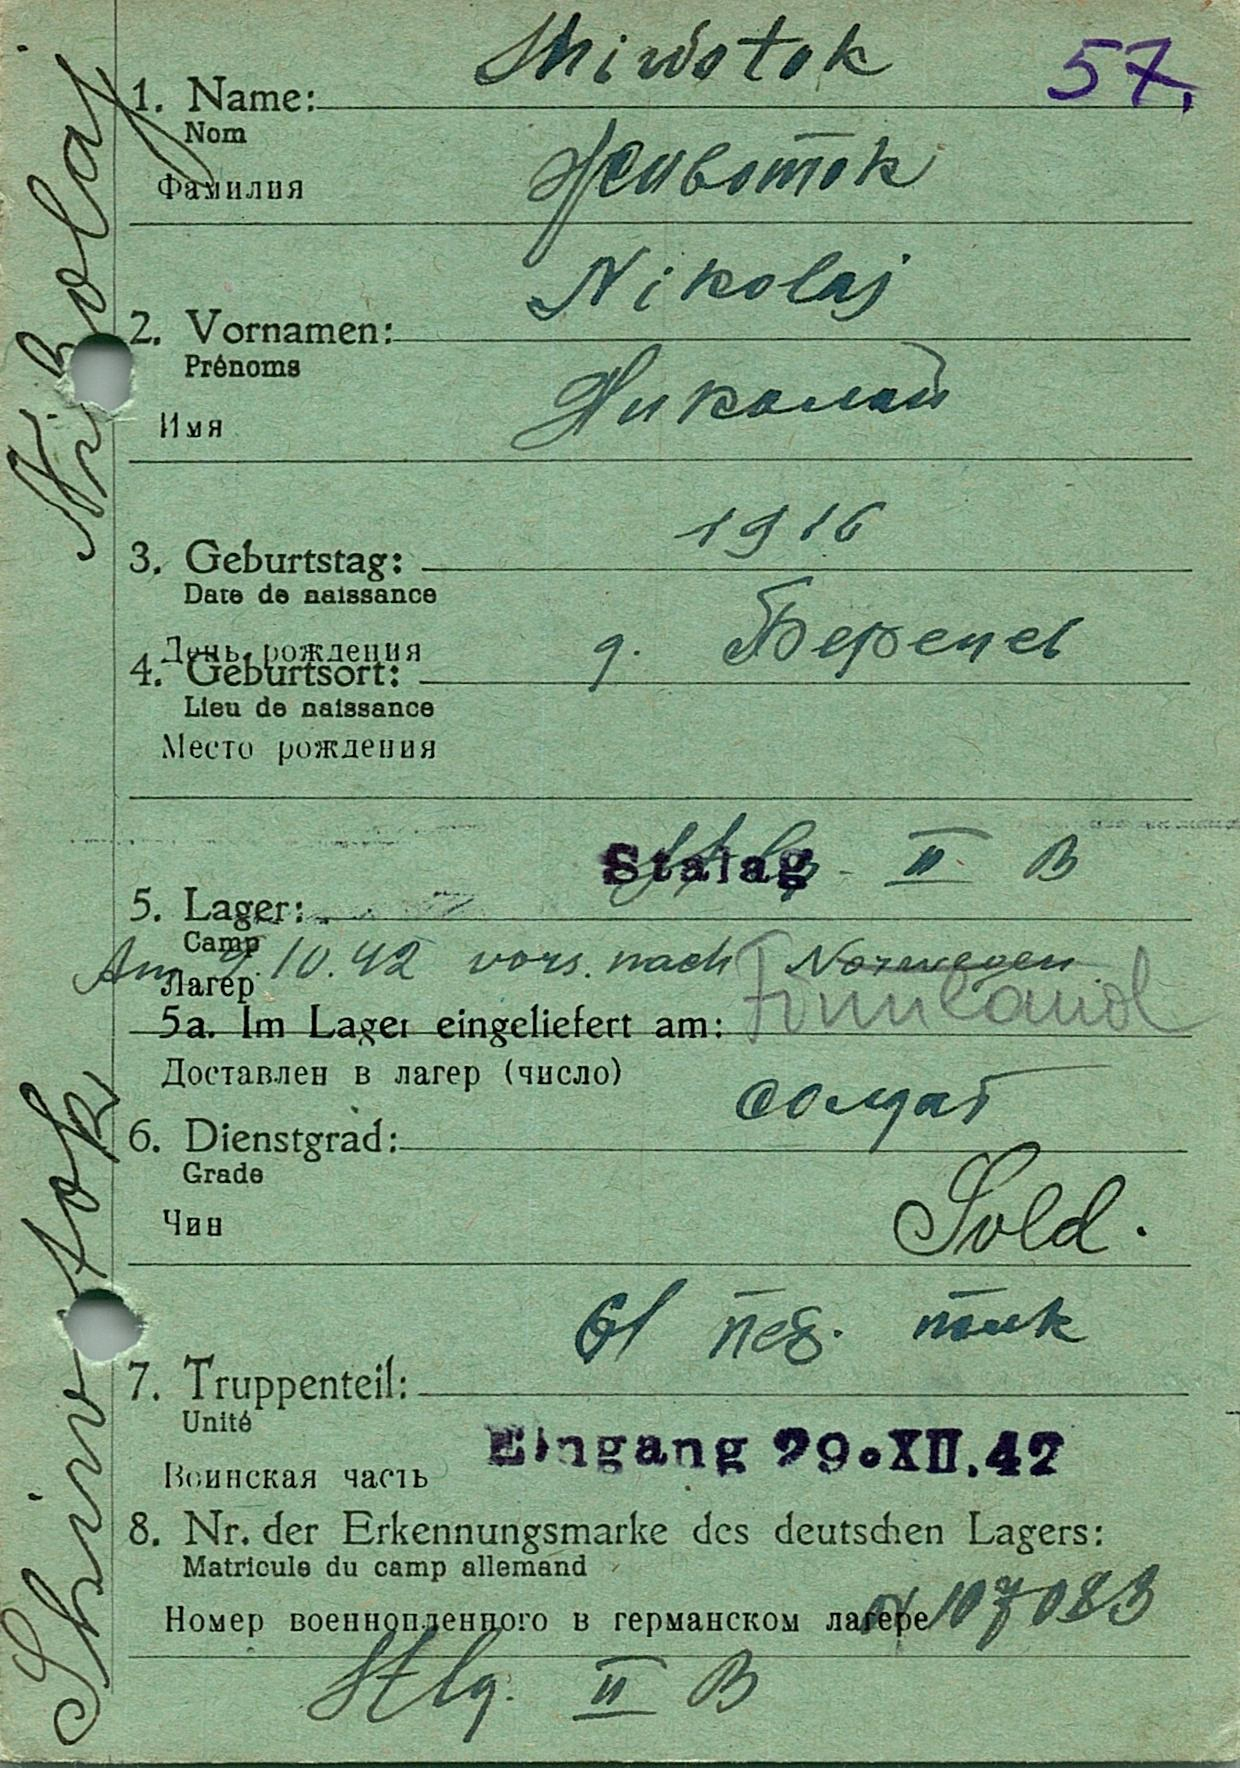 Shiwotok
57.
1. Name:
Nom
Животок
Фамилия
Nikolaj
2. Vornamen:
Prénoms
Николай
Имя
1916
3. Geburtstag:
Date de naissance
День рождения
д.
4. Geburtsort:
Lieu de naissance
Место рождения
Stalag II B
5. Lager:
Camp
Am 9.10.42 vers. nach Norwegen
Лагер
Finnland
5a. Im Lager eingeliefert am:
Доставлен в лагер (число)
солдат
6. Dienstgrad:
Grade
Sold.
Чин
61 пех. полк
7. Truppenteil:
Unité
Eingang 29.XII.42
Воинская часть
8. Nr. der Erkennungsmarke des deutschen Lagers:
Matricule du camp allemand
Номер военнопленного в германском лагере 107083
Stlg. II B
Shiwotok Nikolaj